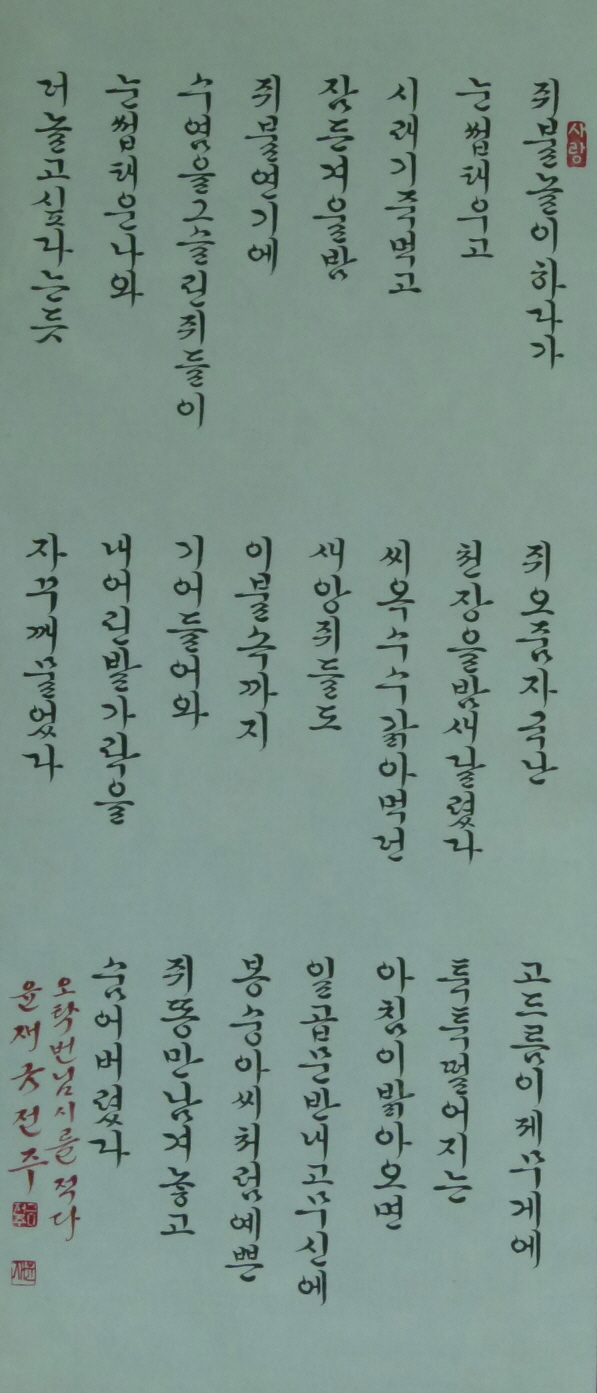 사랑
쥐불놀이하다가
눈썹태우고
시래기죽먹고
잠든겨울밤
쥐불연기에
수염을그슬린쥐들이
눈썹태운나와
더놀고싶다는듯
쥐오줌자국난
천장을밤새달렸다
씨옥수수갉아먹던
새앙쥐들도
이불속까지
기어들어와
내어린발가락을
자꾸깨물었다
고드름이제무게에
툭툭떨어지는
아침이밝아오면
일곱문반내고무신에
봉숭아씨처럼예쁜
쥐똥만남겨놓고
숨어버렸다
오탁번님시를적다
윤재 전주